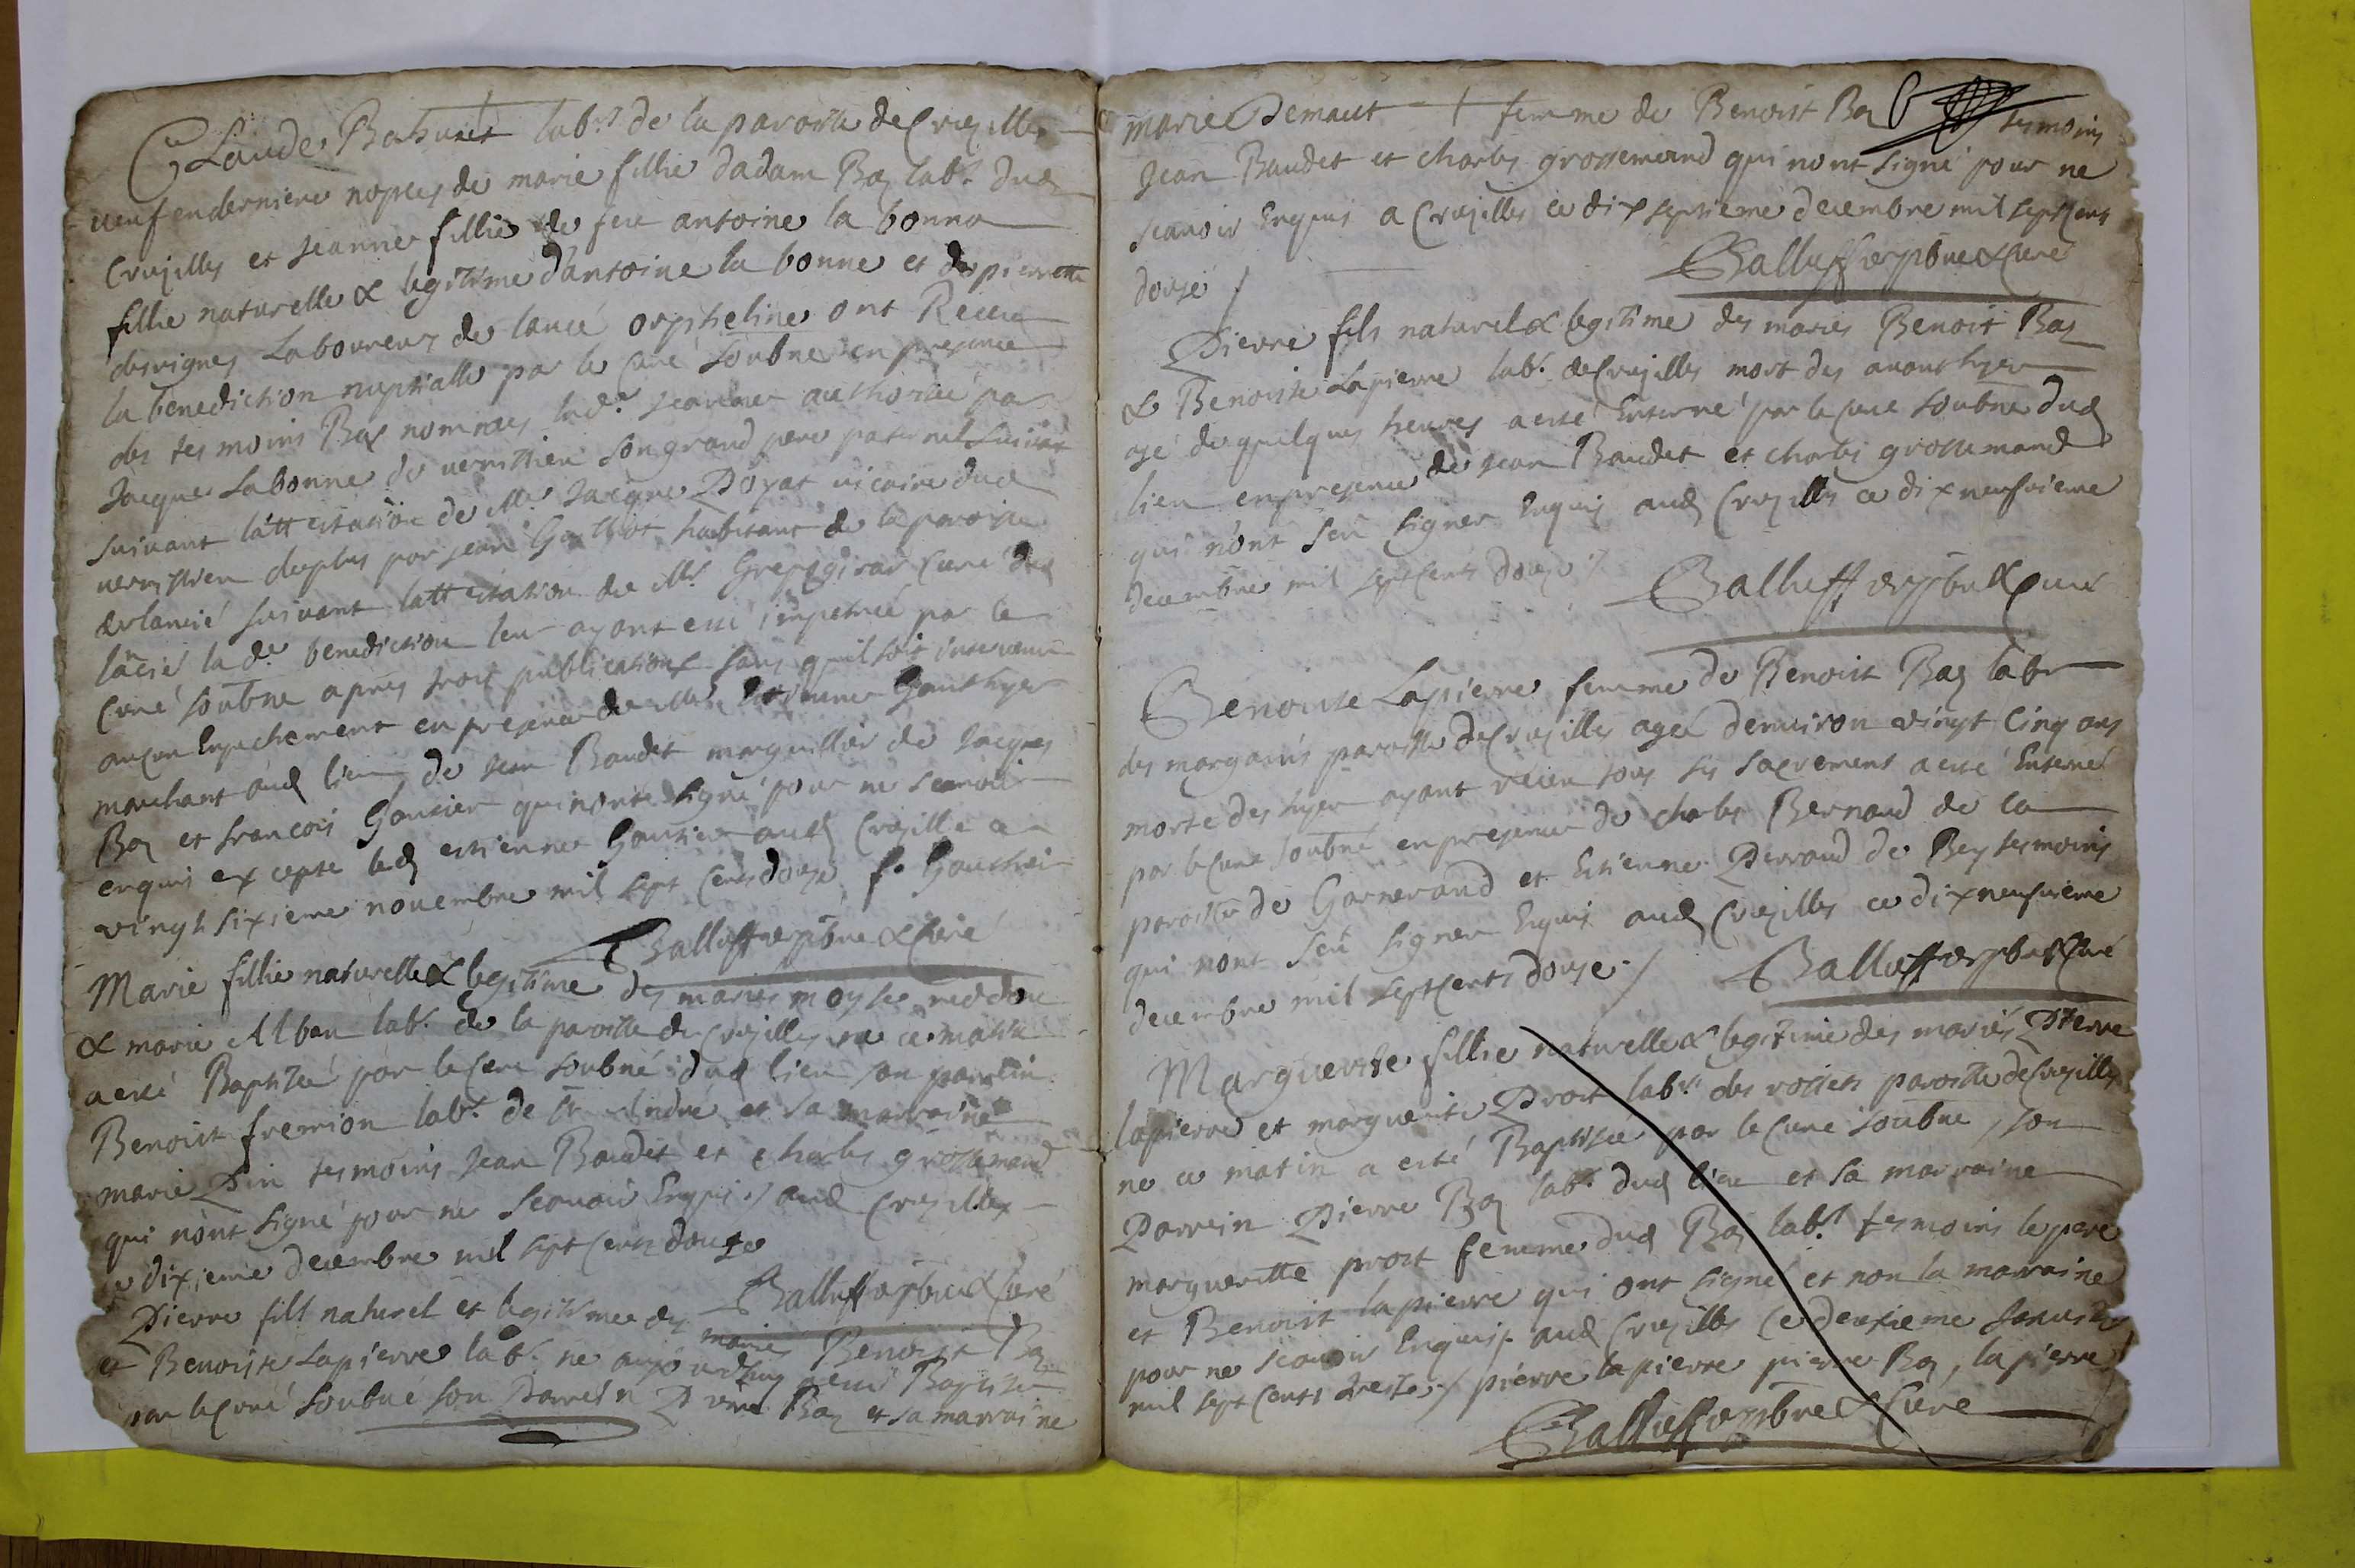 Claude Bahuret labr de la paroisse de Crusilles
veuf en derniere nopces de marie fillie dadam Bay labr dud
Crusilles et jeanne fillie de feu antoine la bonne
fillie naturelle & legitime dantoine la bonne et de pierrette
desvignes Laboureurs de lancié orpheline ont Receu
la benediction nuptialle par le Curé soubne en presence
des tesmoins Bas nommes lade jeanne authorisée par
Jacque Labonne de vernissieu son grand pere paternel suivant
suivant l'attestation de Mr Jacque Doyat vicaire dud
deplus par jean habitant de la paroisse
de lancié suivant lattestation de Mr curé dud
lancié lade benediction leur ayant esté impetree par le
Curé soubne apres trois publications sans quil soit intervenu
aucun Enpechement en presence de Mr estienne Gauthyer
marchant aud lieu de jean Baudet marguillier de Jacques
Bay et francois Gautier qui nont signé pour ne scavoir
enquis excepté led estienne Gautier aud Crusille ce
vingt sixieme novembre mil sept cents douze Gauthier
Balluff pbre & Curé
Marie fillie naturelle & legitime des maries moyse
& marie Alban labr de la paroisse de Crusilles ne ce matin
a esté Baptisée par le Cure soubné dud lieu son parrin
Benoist fremion labr de St André et sa marraine
marie Pin tesmoins Jean Baudet et charles grossemand
qui nont signé pour ne Scavoir Enquis / aud Crusilles
ce dixieme decembre mil sept cents douze
Balluff pbre & Curé
Pierre fils naturel et legitime des mariés Benoist Bay
et Benoiste Lapierre labr ne aujourdhuy a esté Baptisé
par le Curé soubné son Parrein Pierre Bay et sa marraine
marie Demaut femme de Benoist Bay tesmoins
Jean Baudet et charles grossemand qui nont signé pour ne
scavoir Enquis a Crusilles ce dix septieme decembre mil sept cents
douze /
Balluff pbre & Curé
Pierre fils naturel & legitime des maries Benoit Bay
& Benoiste Lapierre labr de Crusilles mort des avant hyer
agé de quelques heures a esté Enterré par le Curé soubne dud
lieu en presence de Jean Baudet et charles grossemand
qui nont seu signer Enquis aud Crusilles ce dix neufvieme
decembre mil sept cents douze /
Balluff pbre & Curé
Benoiste Lapierre femme de Benoist Bay labr
des margarins paroisse de Crusilles agée denviron vingt Cinq ans
morte des hyer ayant receu tous ses sacrement a esté Enterré
par le Cure soubné en presence de charles Bernard de la
paroisse de Garnerand et Estienne Perraud de Bey tesmoins
qui nont seu signer Enquis aud Crusilles ce dix neufvieme
decembre mil sept cents douze /
Balluff pbre & Curé
Marguerite fillie naturelle & legitime des mariés Pierre
lapierre et marguerite Prost labrs des rossets paroisse de Crusilles
ne ce matin a esté Baptisée par le Curé soubne, son
Parrein Pierre Bay labr dud lieu et sa marraine
marguerite prost femme dud Bay labr tesmoins le pere
et Benoist lapierre qui ont signé et non la marraine
pour ne scavoir Enquis aud Crusilles ce deuxieme Janvier
mil sept cents treize / pierre lapierre pierre Bay, lapierre
Balluff pbre & Curé